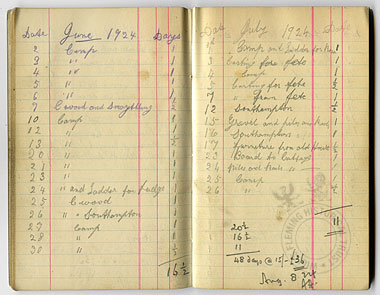 Date June 1924 Days
2 Camp 1
3 " 1
4 " 1
5 "
7 Ewood and 1/2
10 Camp 1
12 " 1
13 " 1
20 " 1
21 " 1/2
23 " 1
24 " and Ladder for 1
25 Ewood 1
26 " " Southampton 1
27 Camp 1
28 " 1/2
30 "
16 1/2
Date July 1924 Date
1st Camp and Ladder for 1
3 Carting for fete 1
4 Camp 1
5 Carting for fete 1/2
7 " from fete 1
12 Southampton 1/2
15 Gravel and
16 Southampton 1
17 Furniture from old House
23 to Cottage 1
24
25 Camp 1
26 " 1/2
11
20 1/2
16 1/2
11
48 days @ 15/- £36
Aug. 8